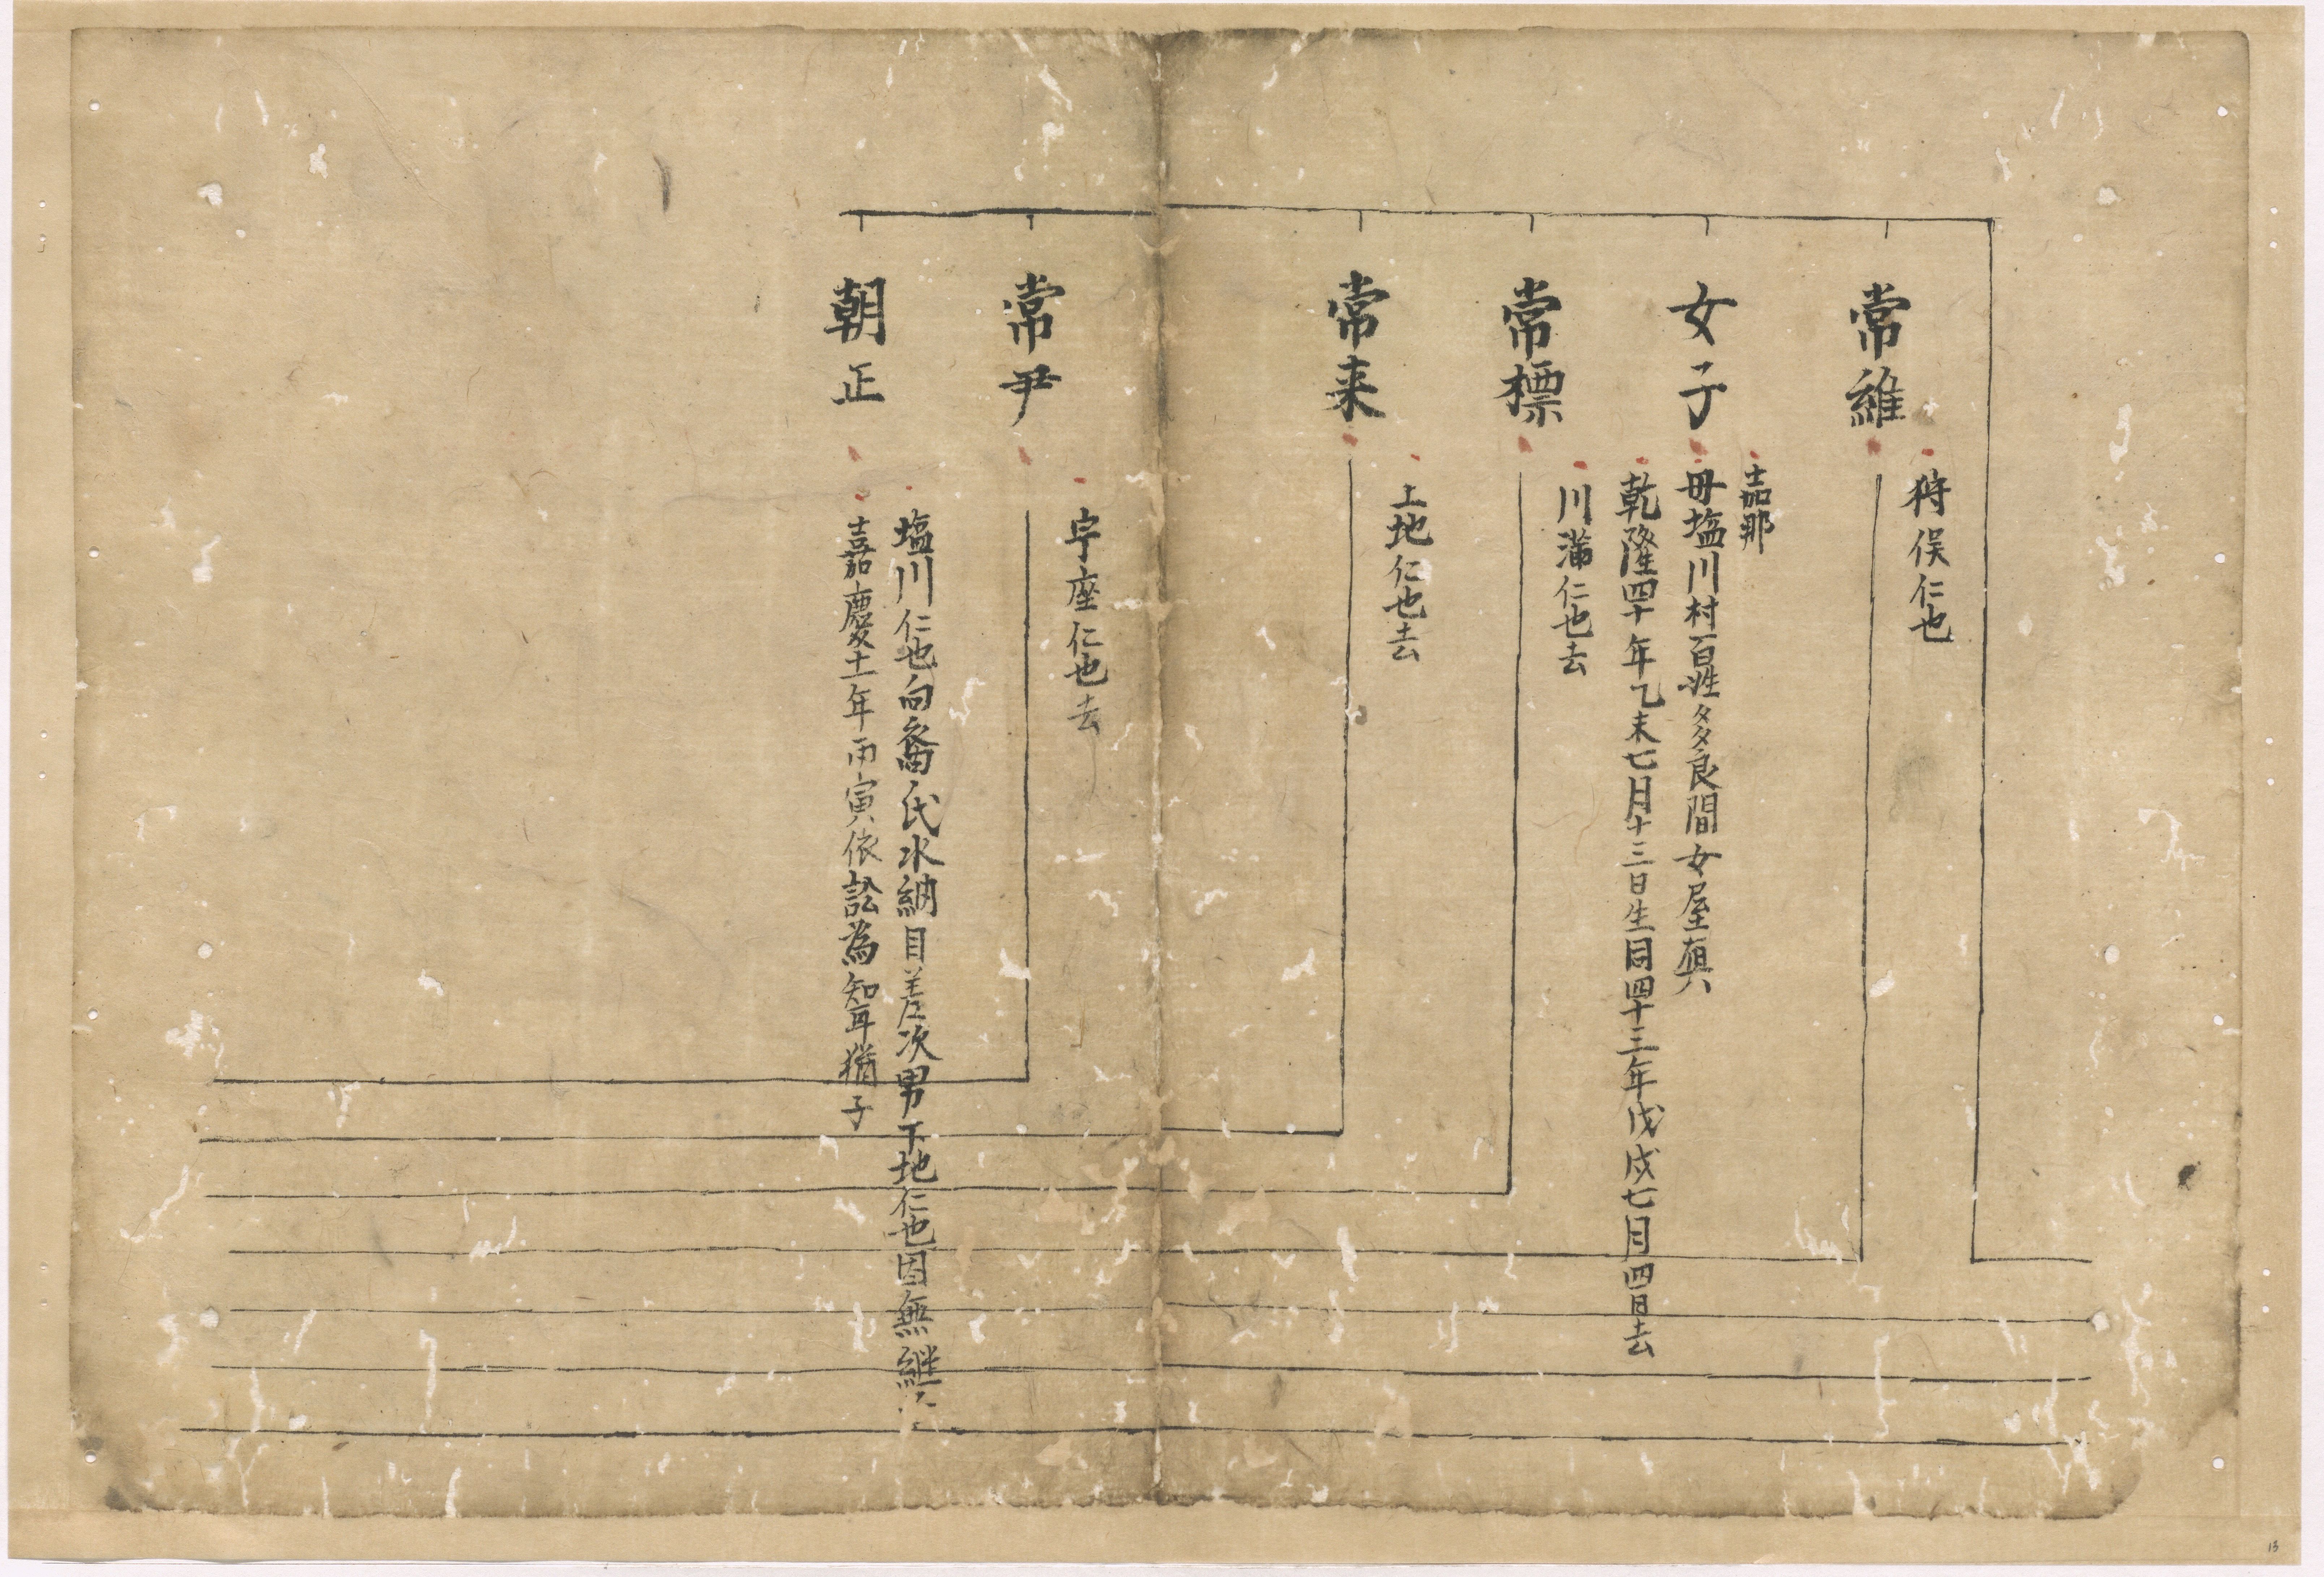 常維
狩俣仁也
女子
嘉那
母塩川村百姓多良間女屋真
乾隆四十年乙未七月十三日生同四十三年戊戌七月四日去
常標
川満仁也去
常来
上地仁也去
常尹
宇座仁也去
朝正
塩川仁也向裔氏水納目差次男下地仁也因無継
嘉慶十一年丙寅依訟為知耳猶子
13